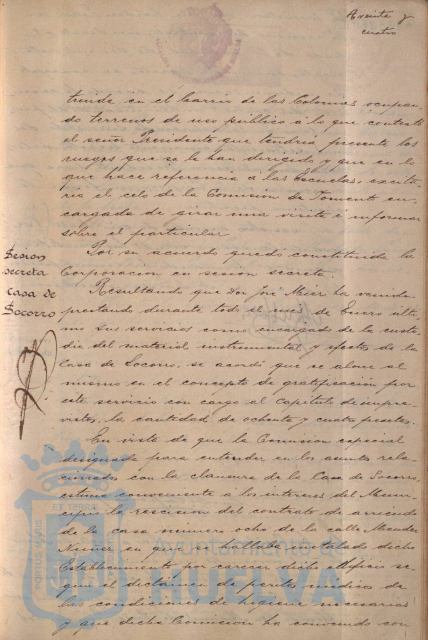 treinta y
cuatro
truida en el barrio de las Colonias ocupan-
do terrenos de uso público á lo que contestó
el señor Presidente que tendría presente los
ruegos que se le han dirigido y que en lo
que hace referencia á las Escuelas, excita-
ría el celo de la Comisión de Fomento en-
cargada de girar una visita é informar
sobre el particular.
Por su acuerdo quedó constituida la
Corporacion en sesion secreta.
Sesion
secreta
Casa de
Socorro
Resultando que Don José Mier ha venido
prestando durante todo el mes de Enero últi-
mo sus servicios como encargado de la custo-
dia del material instrumental y efectos de la
Casa de Socorro, se acordó que se abone al
mismo en el concepto de gratificación por
este servicio con cargo al Capítulo de impre-
vistos, la cantidad de ochenta y cuatro pesetas.
En vista de que la Comision especial
designada para entender en los asuntos rela-
cionados con la clausura de la Casa de Socorro,
estima conveniente a los intereses del Muni-
cipio la rescision del contrato de arriendo
de la casa número ocho de la calle Mendez
Nuñez en que se hallaba instalado dicho
Establecimiento por carecer dicho edificio se-
gun el dictámen de peritos médicos de
las condiciones de higiene necesarias
y que dicha Comision ha convenido con
Ayuntamiento de
HUELVA